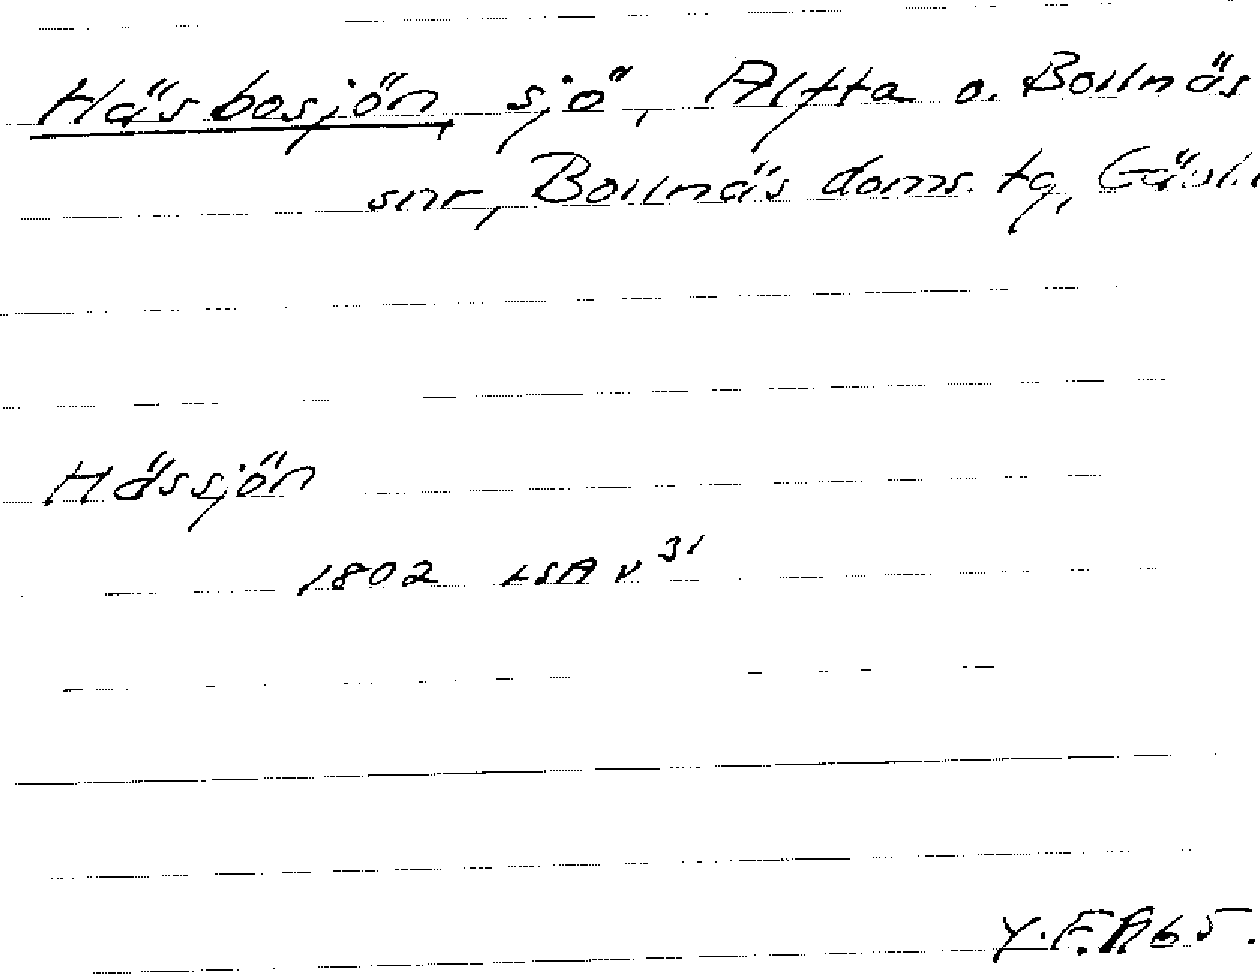 Häsbosjön, sjö, Alfta o. Bollnäs
snr, Bollnäs doms. tg, Gävl.
Hässjön
1802 LSA V 31
Y.F.A65.